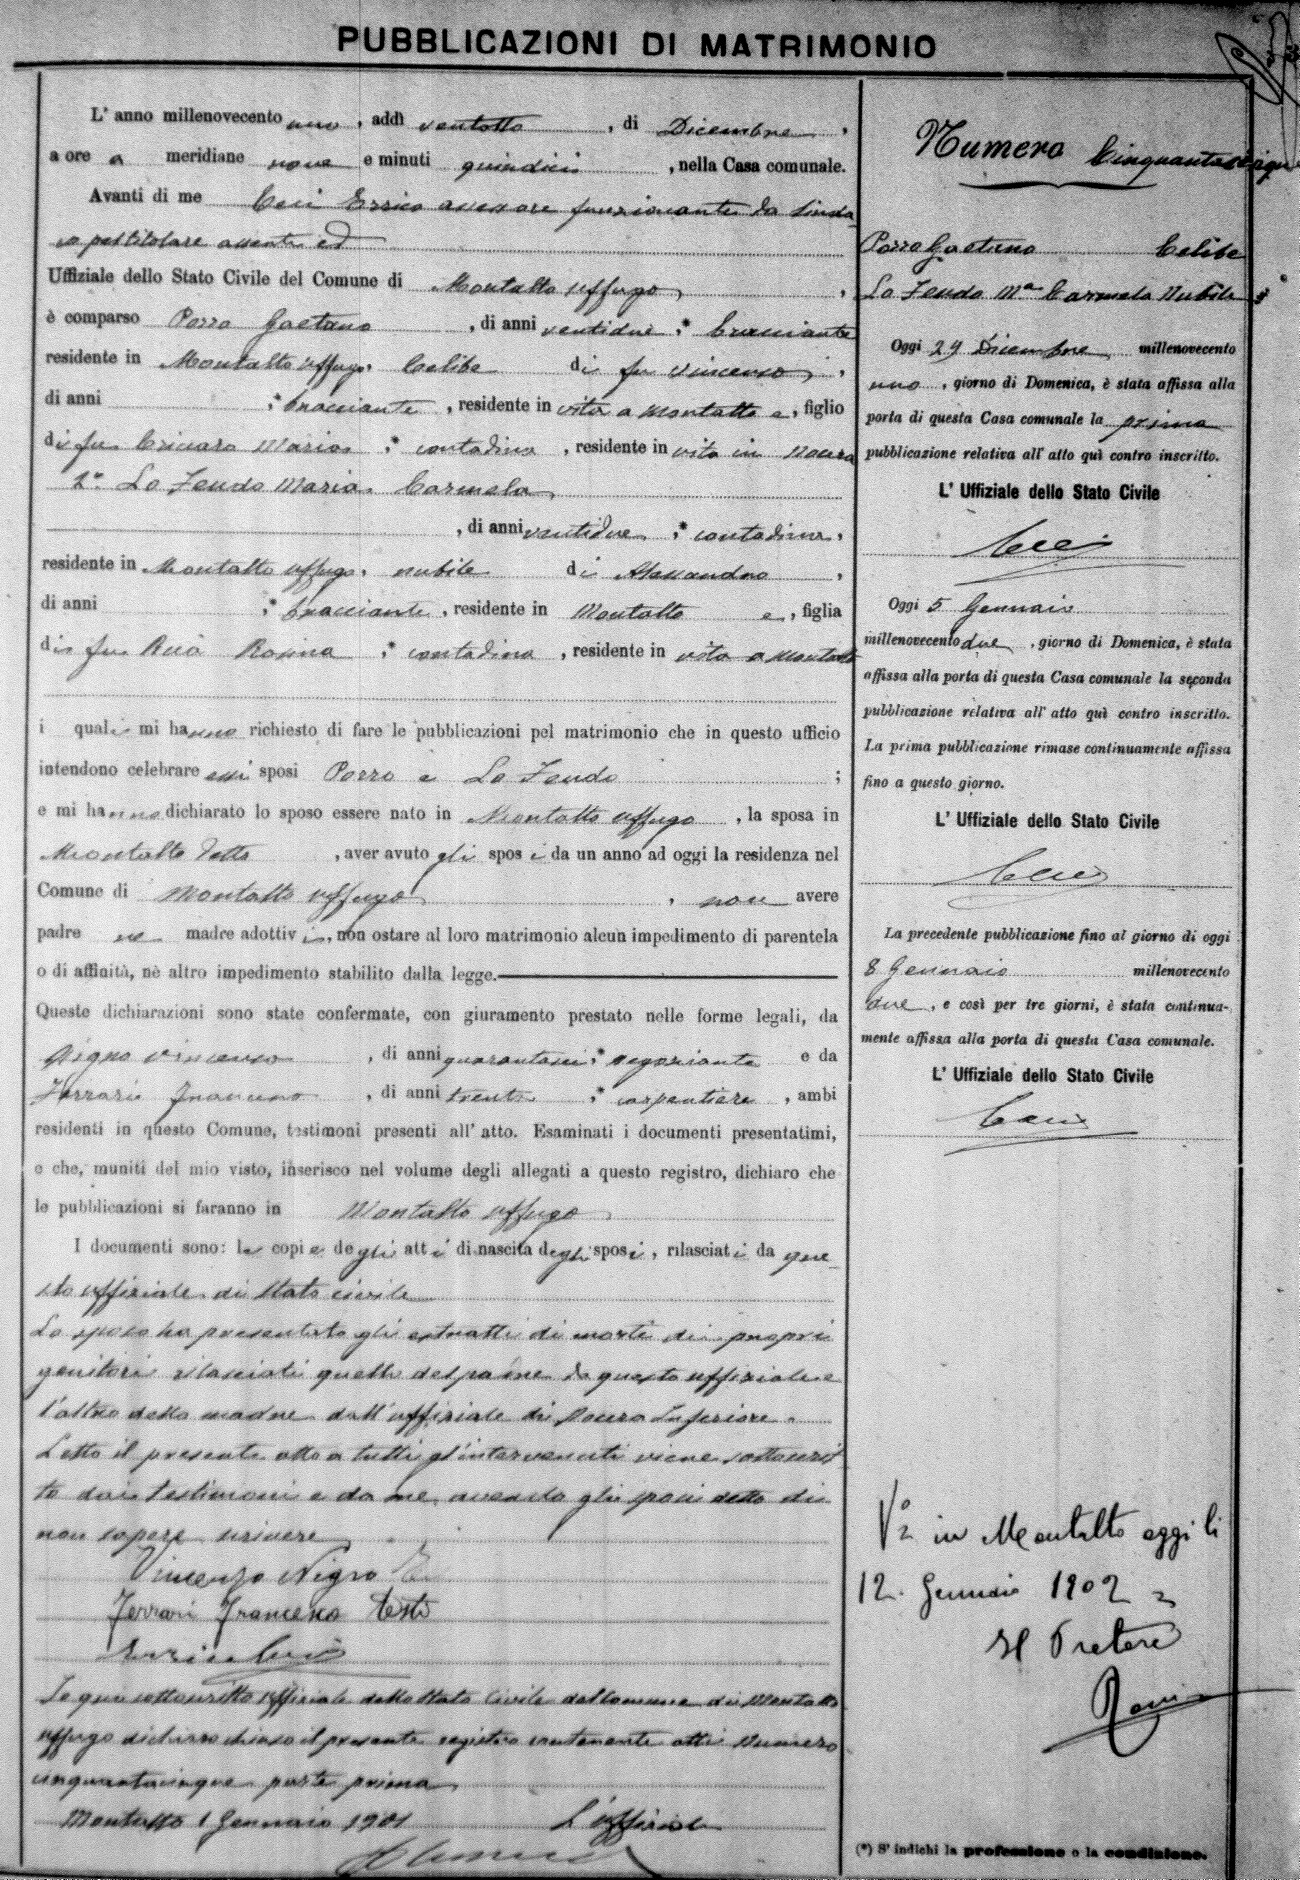 PUBBLICAZIONI DI MATRIMONIO
L' anno millenovecento uno, addì ventotto, di Dicembre,
a ore a meridiane nove e minuti quindici, nella Casa comunale.
Avanti di me Ceci Errico assessore funzionante da Sinda-
co pel titolare assente ed
Uffiziale dello Stato Civile del Comune di Montalto Uffugo,
è comparso Porro Gaetano, di anni ventidue;* bracciante
residente in Montalto Uffugo, celibe di fu Vincenzo,
di anni ;* bracciante, residente in vita a Montalto e, figlio
di fu Maria;* contadina, residente in vita in
2° Lo Feudo Maria Carmela
, di anni ventidue;* contadina,
residente in Montalto Uffugo, nubile di Alessandro,
di anni ;* bracciante, residente in Montalto e, figlia
di fu Rosina;* contadina, residente in vita a Montalto
i quali mi hanno richiesto di fare le pubblicazioni pel matrimonio che in questo ufficio
intendono celebrare essi sposi Porro e Lo Feudo;
e mi hanno dichiarato lo sposo essere nato in Montalto Uffugo, la sposa in
Montalto detto, aver avuto gli sposi da un anno ad oggi la residenza nel
Comune di Montalto Uffugo, non avere
padre ne madre adottivi, non ostare al loro matrimonio alcun impedimento di parentela
o di affinità, nè altro impedimento stabilito dalla legge.
Queste dichiarazioni sono state confermate, con giuramento prestato nelle forme legali, da
Nigro Vincenzo, di anni;* negoziante e da
Ferrari Francesco, di anni trenta;* carpentiere, ambi
residenti in questo Comune, testimoni presenti all' atto. Esaminati i documenti presentatimi,
e che, muniti del mio visto, inserisco nel volume degli allegati a questo registro, dichiaro che
le pubblicazioni si faranno in Montalto Uffugo
I documenti sono: le copie degli atti di nascita degli sposi, rilasciati da que-
sto uffiziale di Stato civile
Lo sposo ha presentato gli estratti di morte dei propri
genitori rilasciati quello del padre da questo uffiziale e
l'altro della madre dall'uffiziale di Inferiore.
Letto il presente atto a tutti gl'intervenuti viene sottoscrit
to dai testimoni e da me, avendo gli sposi detto di
non sapere scrivere
Vincenzo Nigro
Ferrari Francesco teste
Errico Ceci
Io qui sottoscritto uffiziale dello Stato Civile del Comune di Montalto
Uffugo dichiaro chiuso il presente registro contenente atti numero
cinquantacinque parte prima
Montalto 1 Gennaio 1901 L'uffiziale
Numero Cinquantacinque
Porro Gaetano Celibe
Lo Feudo Ma Carmela Nubile
Oggi 29 Dicembre millenovecento
uno, giorno di Domenica, è stata affissa alla
porta di questa Casa comunale la prima
pubblicazione relativa all' atto quì contro inscritto.
L' Uffiziale dello Stato Civile
Ceci
Oggi 5 Gennaio
millenovecento due, giorno di Domenica, è stata
affissa alla porta di questa Casa comunale la seconda
pubblicazione relativa all' atto quì contro inscritto.
La prima pubblicazione rimase continuamente affissa
fino a questo giorno.
L' Uffiziale dello Stato Civile
Ceci
La precedente pubblicazione fino al giorno di oggi
8 Gennaio millenovecento
due, e così per tre giorni, è stata continua-
mente affissa alla porta di questa Casa comunale.
L' Uffiziale dello Stato Civile
Ceci
V° in Montalto oggi li
12. Gennaio 1902
Il Pretore
(*) S' indichi la professione o la condizione.